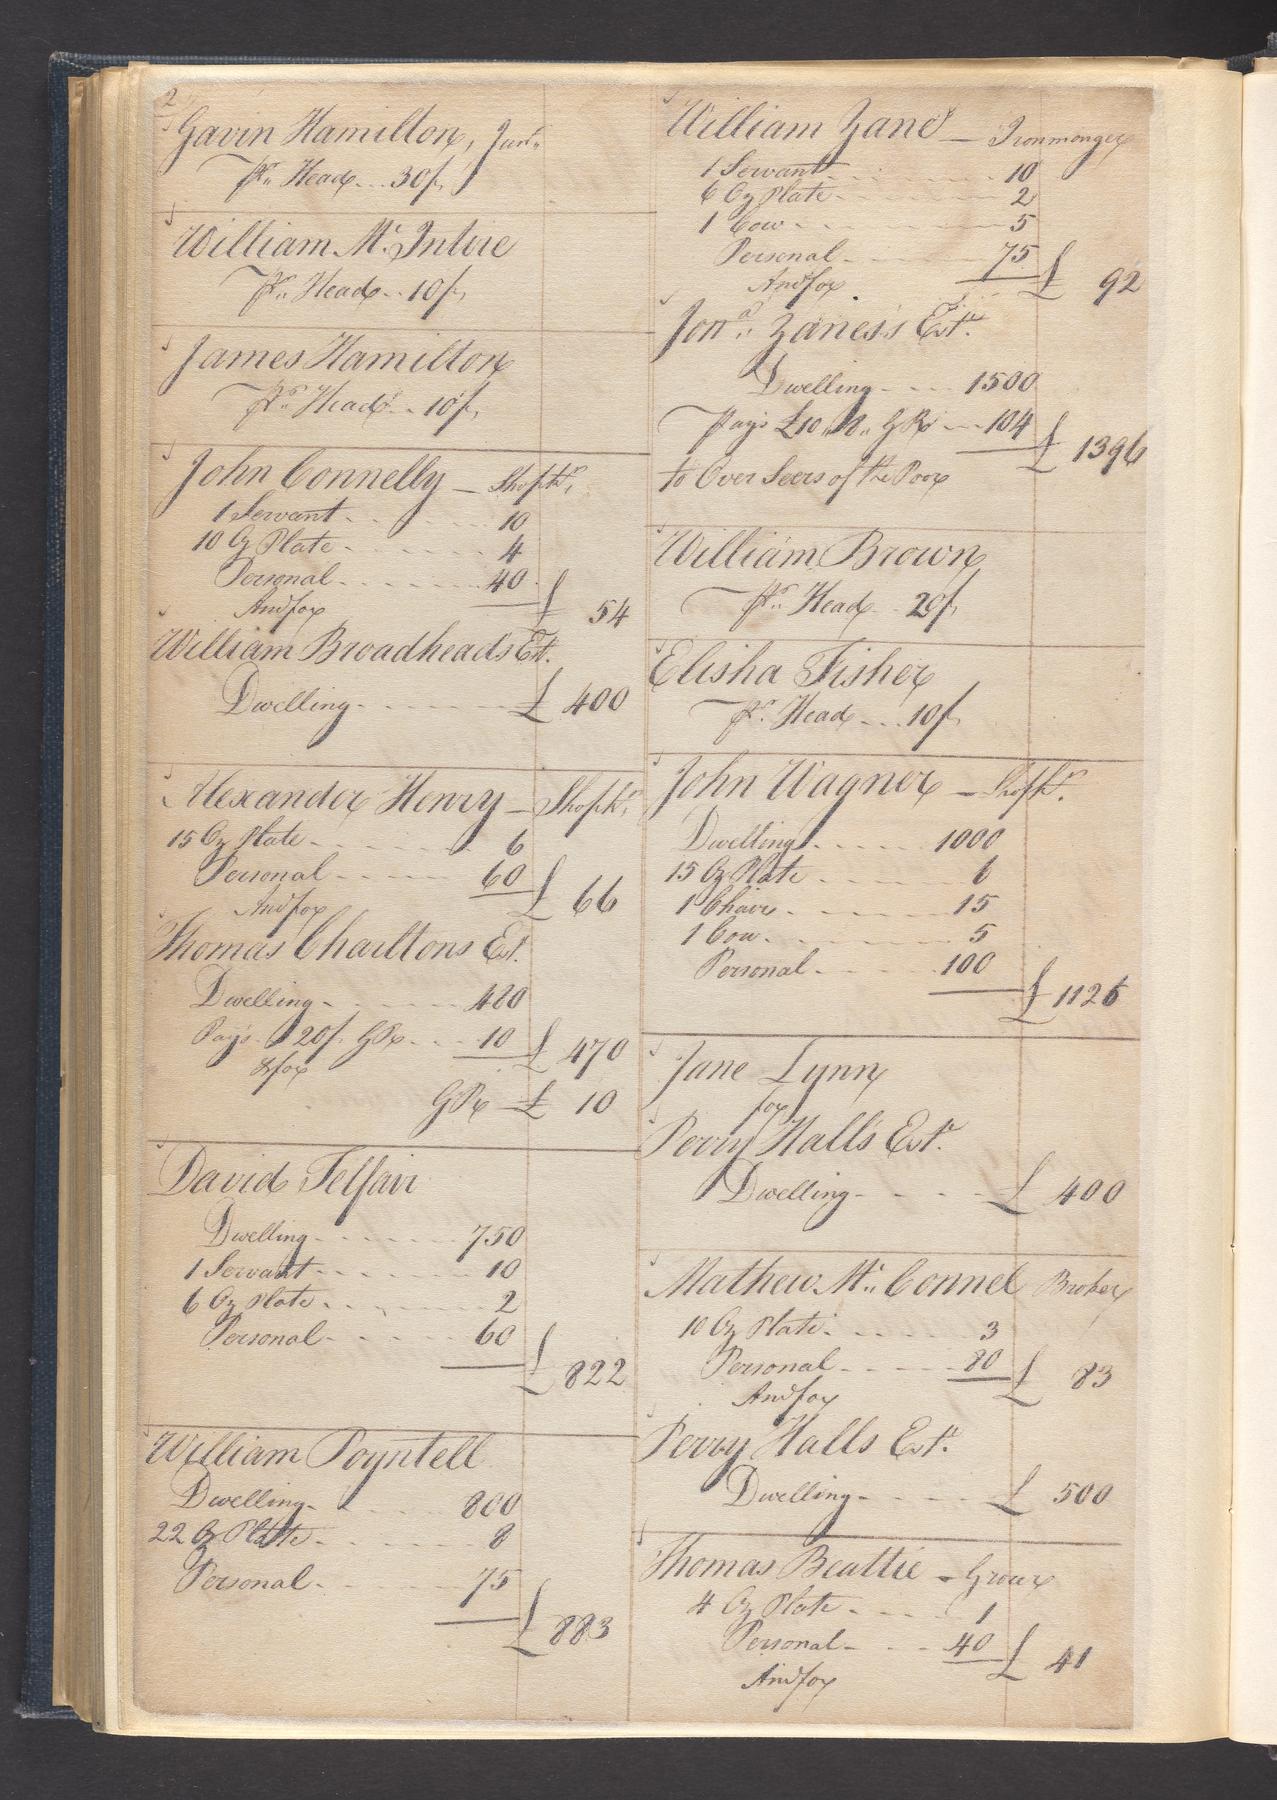 2
Gavin Hamilton, Junr.
Pr. Head... 30/
William Mc. Intire
Pr. Head.. 10/
James Hamilton
Pr. Head.. 10/
John Connelly — Shopkr.
1 Servant.. 10
10 Oz Plate. 4
Personal 40
And for £ 54
William Broadhead's Est.
Dwelling £ 400
Alexander Henry — Shopkr.
15 Oz Plate 6
Personal 60
And for £ 66
Thomas Charltons Est.
Dwelling 480
Pays 20/ GRt 10 £ 470
& for
GRt £ 10
David Telfair
Dwelling 750
1 Servant 10
6 Oz Plate 2
Personal 60
£ 822
William Poyntell
Dwelling 800
22 Oz Plate 8
Personal 75
£ 883
William Zane — Ironmonger
1 Servant 10
6 Oz Plate 2
1 Cow 5
Personal 75
And for £ 92
Jona. Zanes's Estt.
Dwelling 1500
Pays £10,,8,, GRt 104 £ 1396
to Over Seers of the Poor
William Brown
Pr. Head.. 20/
Elisha Fisher
Pr. Head... 10/
John Wagner — Shopkr.
Dwelling 1000
15 Oz Plate 6
1 Chair 15
1 Cow 5
Personal 100
£ 1126
Jane Lynn
for
Perry Hall's Estt.
Dwelling £ 400
Mathew Mc. Connel Broker
10 Oz Plate 3
Personal 80 £ 83
And for
Perry Halls Estt.
Dwelling £ 500
Thomas Beattie - Grocer
4 Oz Plate 1
Personal 40 £ 41
And for